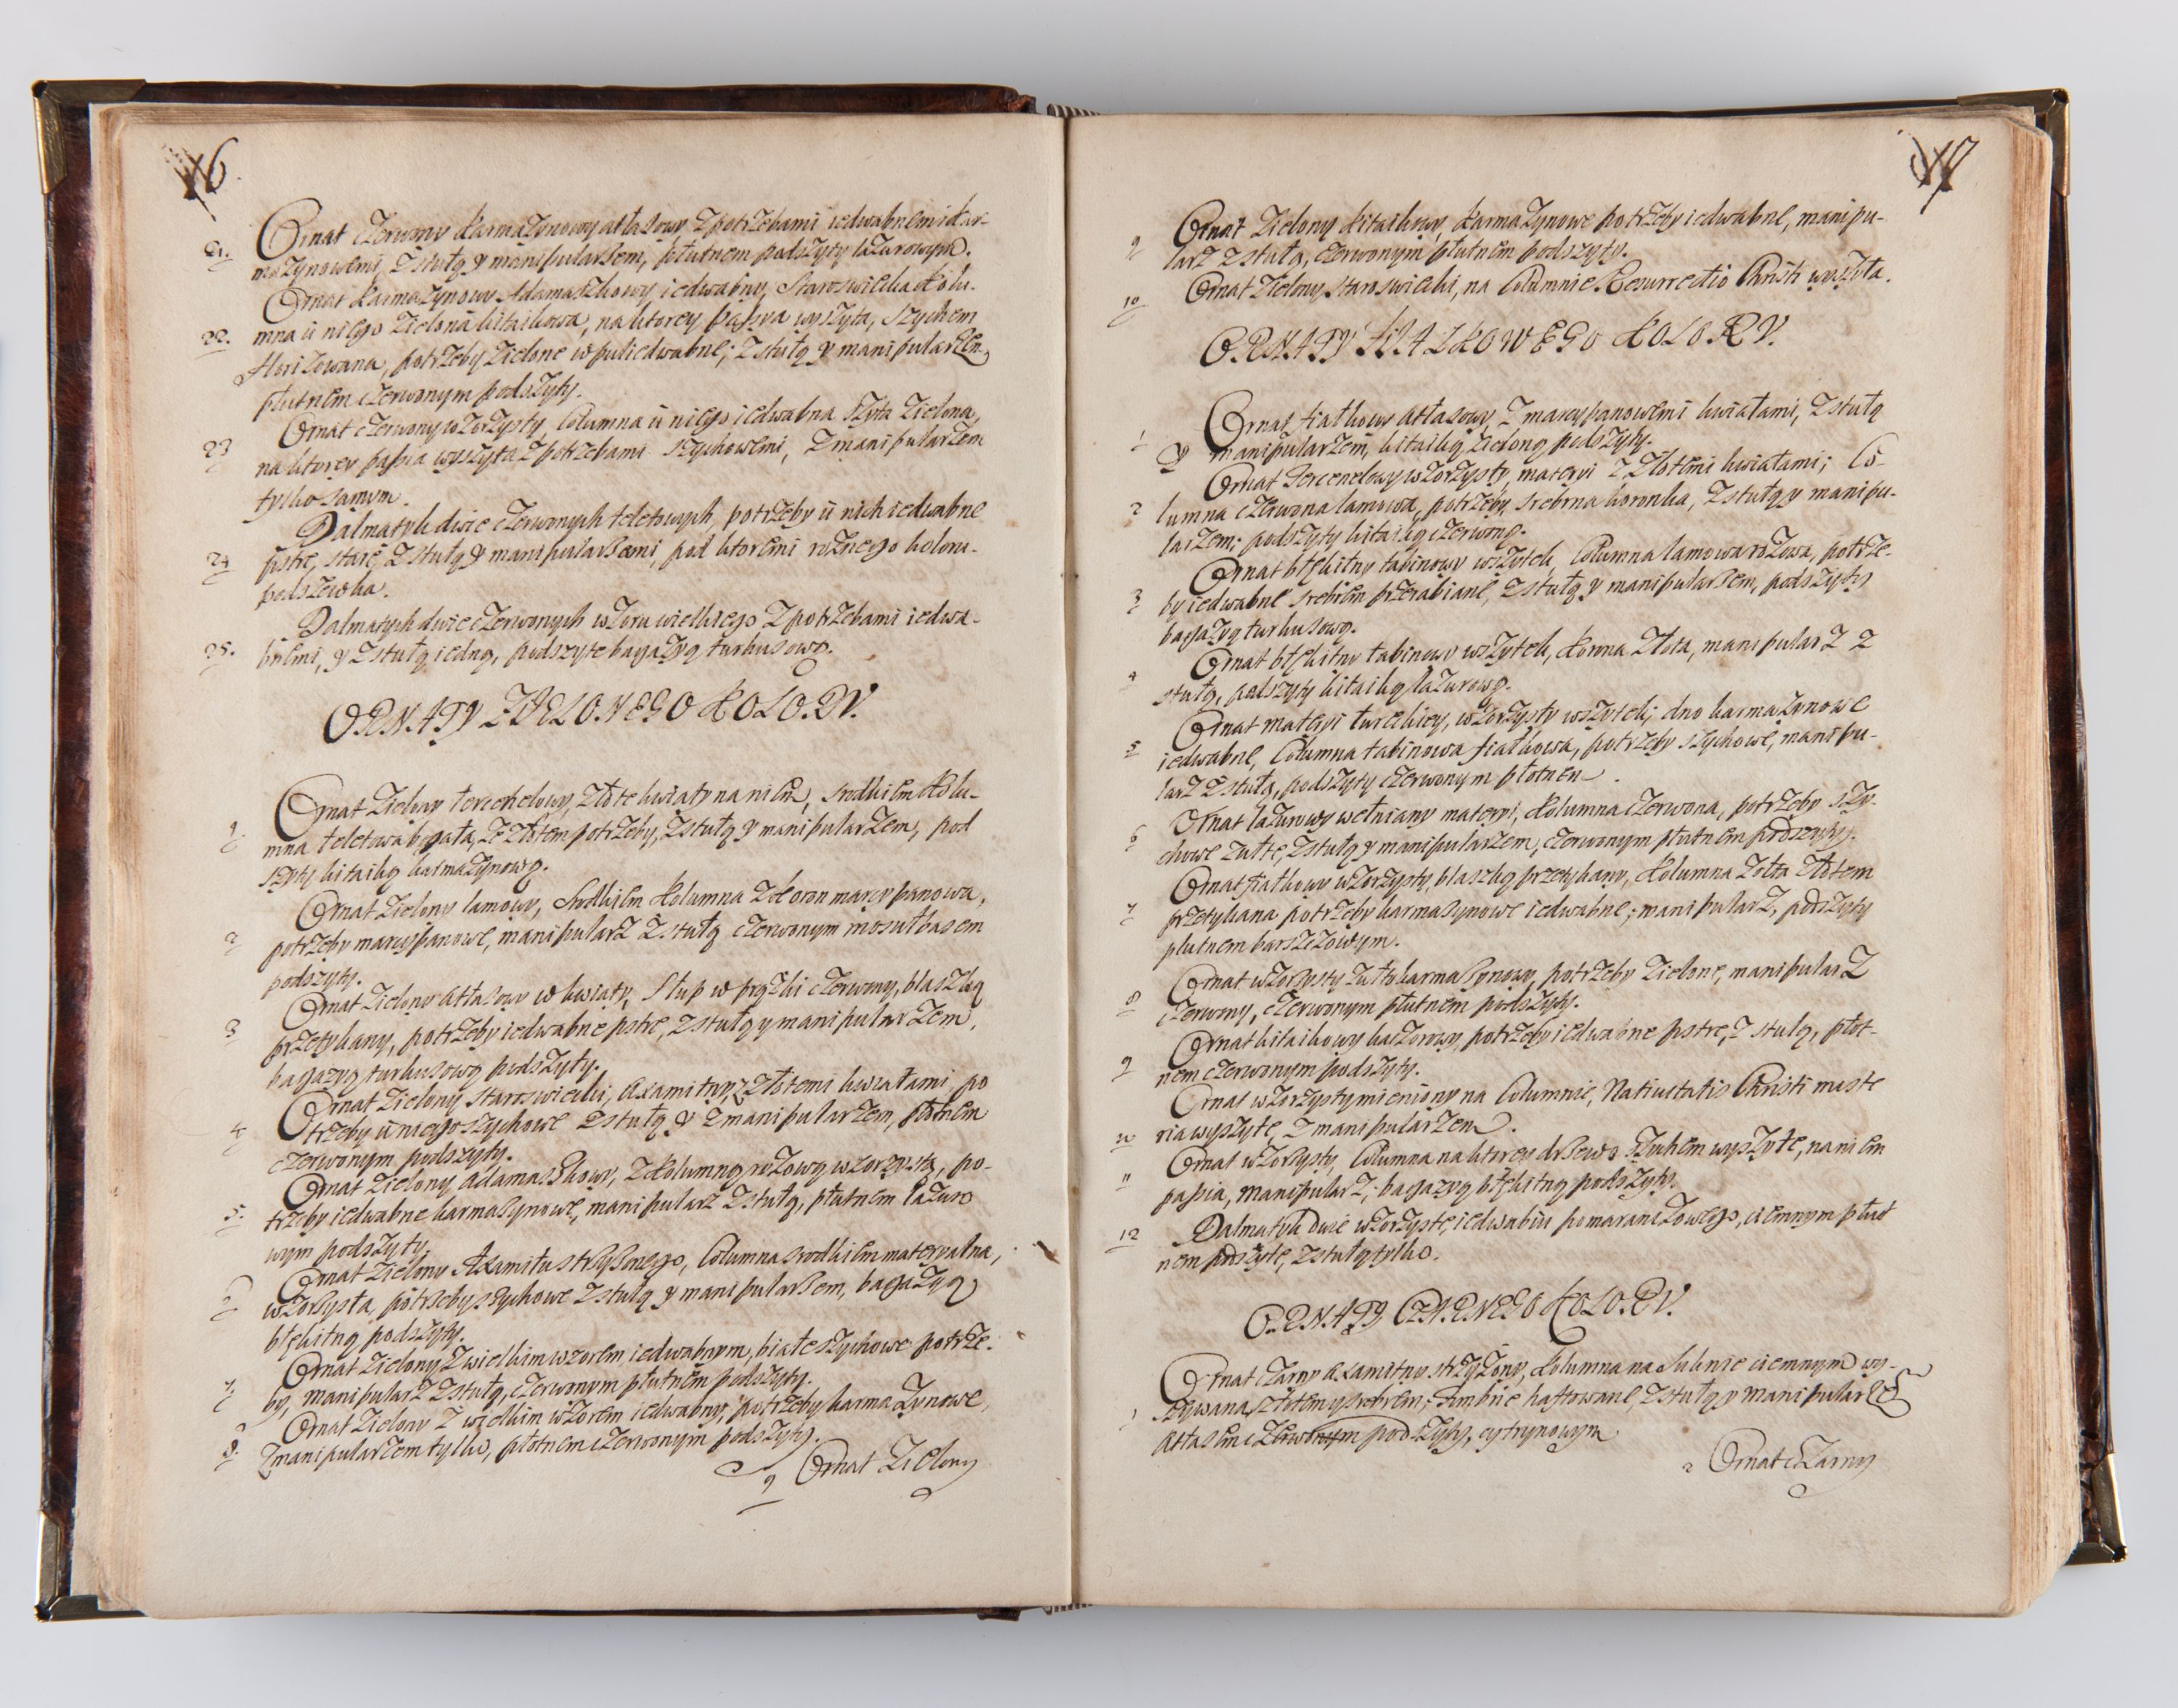 16.
21. Ornat czerwony karmazynowy atłasowy z potrzebami iedwabnemi kar-
mazynowemi, z stułą y manipularzem, płutnem podszyty lazurowym.
Ornat karmazynowy Adamaszkowy iedwabny, Staroswiecka kolu-
22. mna u niego zielona kitaikowa, na ktorey passya wyszyta, szychem
florizowana, potrzeby zielone w puł iedwabne; z stułą y manipularzem
płutnem czerwonym podszyty.
Ornat czerwony wzorzysty, Columna u niego iedwabna szyta zielona,
23 na ktorey passia wyszyta z potrzebami szychowemi, z manipularzem
tylko samym.
Dalmatyk dwie czerwonych teletowych, potrzeby u nich iedwabne
24 pstre, stare, z stułą y manipularzami, pod ktoremi roznego koloru
podszewka.
Dalmatyk dwie czerwonych wzoru wielkiego z potrzebami iedwa-
25. bnemi, y z stułą iedną, podszyte bagazyą turkusową.
ORNATY ZIELONEGO KOLORV.
Ornat zielony terechelowy, złote kwiaty na nim, srodkiem kolu-
1. mna teletowa bogata, ze złotem potrzeby, z stułą y manipularzem, pod
szyty kitaiką karmazynową.
Ornat zielony lamowy, srodkiem kolumna z koron marcypanowa,
2 potrzeby marcypanowe, manipularz z stułą czerwonym mosułbasem
podszyty.
Ornat zielony atłasowy w kwiaty, Słup w prązki czerwony, blaszką
3 przetykany, potrzeby iedwabne pstre, z stułą y manipularzem,
bagazyą turkusową podszyty.
Ornat zielony staroswiecki, axamitny, z złotemi kwiatami, po
4. trzeby u niego szychowe z stułą y z manipularzem, płotnem
czerwonym podszyty.
Ornat zielony Adamaszkowy, z kolumną rozową wzorzystą, po-
5. trzeby iedwabne karmasynowe, manipularz z stułą, płutnem lazuro
wym podszyty.
Ornat zielony Axamitu strzyzonego, Columna srodkiem materyalna,
6 wzorzysta, potrzeby szychowe z stułą y manipularzem, bagazyą
błękitną podszyty.
Ornat zielony z wielkim wzorem iedwabnym, białe szychowe potrze-
7. by, manipularz z stułą, czerwonym płutnem podszyty.
Ornat zielony z wielkim wzorem iedwabny, potrzeby karmazynowe,
8. z manipularzem tylko, płotnem czerwonym podszyty.
9 Ornat Zielony
17
Ornat Zielony kitaikowy, karmazynowe potrzeby iedwabne, manipu-
9 larz z stułą, czerwonym płutnem podszyty.
10 Ornat Zielony staroswiecki, na Columnie Resurrectio Christi wyszyta.
ORNATY FIAŁKOWEGO KOLORV.
Ornat fiałkowy atłasowy, z marcypanowemi kwiatami, z stułą
1 y manipularzem, kitaiką zieloną podszyty.
Ornat Tercenelowy wzorzysty, materyi z złotemi kwiatami; Co-
2 lumna czerwona lamowa, potrzeby srebrna koronka, z stułą y manipu-
larzem; podszyty kitaiką czerwoną.
Ornat błękitny tabinowy wszytek, Columna lamowa rozowa, potrze-
3 by iedwabne srebrem przerabiane, z stułą y manipularzem, podszyty
bagazyą turkusową.
Ornat błękitny tabinowy wszytek, koruna złota, manipularz z
4 stułą, podszyty kitaiką lazurową.
Ornat materyi tureckiey, wzorzysty wszytek; dno karmazynowe
5 iedwabne, Columna tabinowa fiałkowa, potrzeby szychowe, manipu-
larz z stułą, podszyty czerwonym płotnem.
Ornat lazurowy wełniany materyi, kolumna czerwona, potrzeby szy-
6 chowe zułte, z stułą y manipularzem, czerwonym płutnem podszyty.
Ornat fiałkowy wzorzysty, blaszką przetykany, kolumna zołta złotem
7 przetykana potrzeby karmasynowe iedwabne; manipularz, podszyty
płutnem barszczowym.
Ornat wzorzysty zułto karmasynowy, potrzeby zielone, manipularz
8 czerwony, czerwonym płutnem podszyty.
Ornat kitaikowy kaczorowy, potrzeby iedwabne pstre, z stułą, płot-
9 nem czerwonym podszyty.
Ornat wzorzysty mieniony na Columnie, Natiuitatis Christi miste
10 ria wyszyte, z manipularzem.
Ornat wzorzysty, Columna na ktorey drzewo szychem wyszyte, na nim
11 passia, manipularz; bagazyą błękitną podszyty.
12 Dalmatyk dwie wzorzyste, iedwabiu pomaranczowego, ciemnym płut
nem podszyte, z stułą tylko.
ORNATY CZARNEGO KOLORV.
Ornat czarny axamitny strzyzony, kolumna na suknie ciemnym wy-
1 szywana złotem y srebrem, fimbrie haftowane, z stułą y manipularzem
atłasem czerwonym podszyty, cytrynowym
2 Ornat czarny